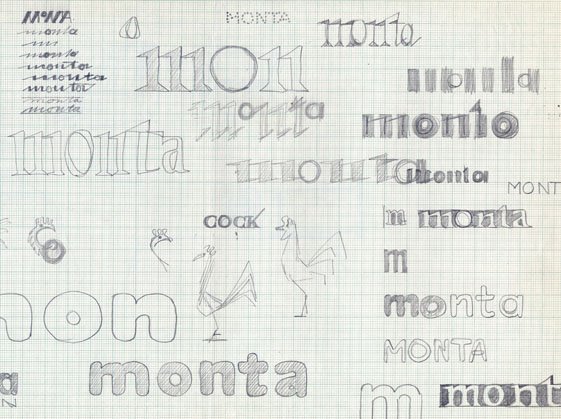 MONTA
monta
m
monta
monta
monta
monta
monta
monta
MONTA
mon
monta
monta
monta
monta
monta
monta
monta
MONT
monta
COCK
m
monta
m
monta
mon
MONTA
monta
a
N
m
mont